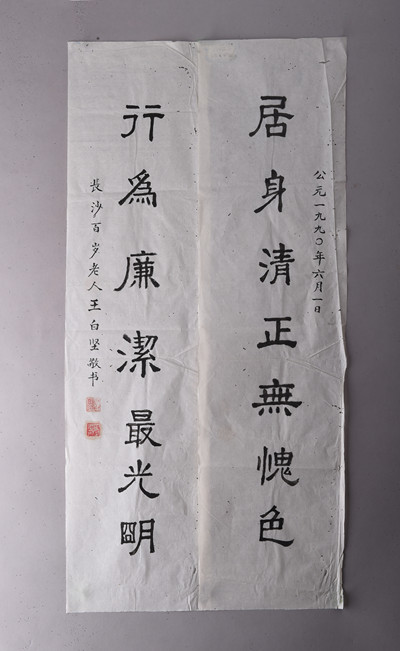 公元一九九〇年六月一日
居身清正無愧色
行為廉潔最光明
長沙百岁老人王白坚敬书